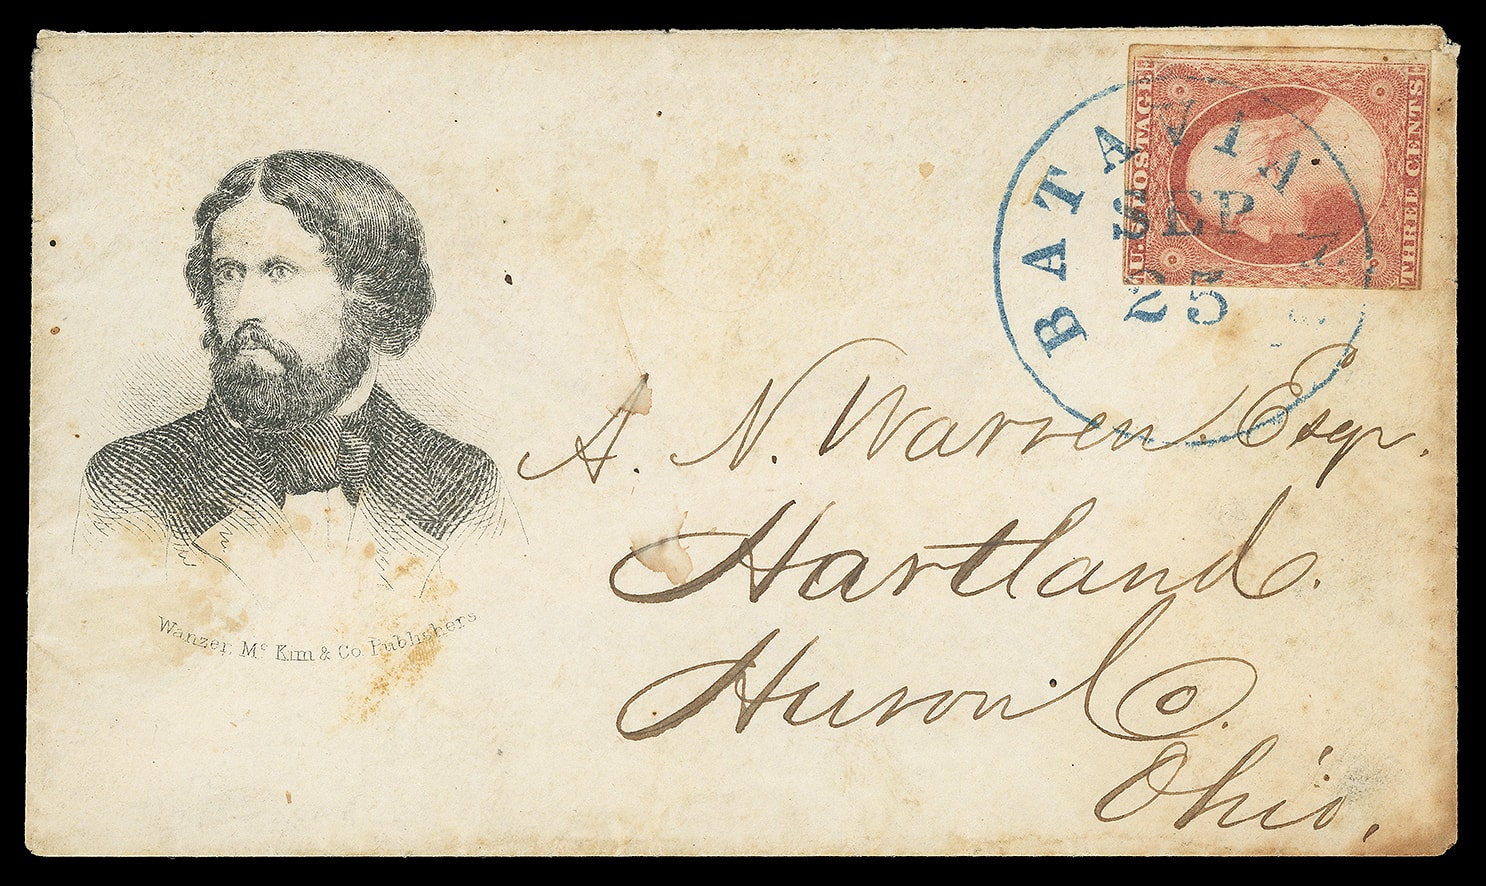 BATAVIA N.
SEP
25
U.S. POSTAGE
THREE CENTS
A. N. Warren Esqr.
Hartland.
Huron Co.
Ohio,
Wanzer, Mc Kim & Co. Publishers